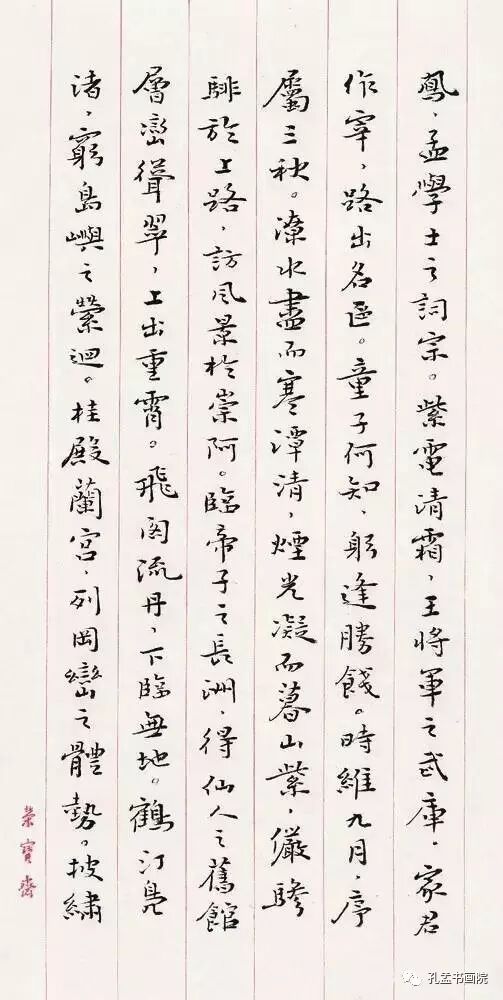 鳳，孟學士之詞宗。紫電清霜，王將軍之武庫。家君
作宰，路出名區。童子何知，躬逢勝餞。時維九月，序
屬三秋。潦水盡而寒潭清，煙光凝而暮山紫，儼驂
騑於上路，訪風景於崇阿。臨帝子之長洲，得仙人之舊館
層巒聳翠，上出重霄。飛閣流丹，下臨無地。鶴汀鳧
渚，窮島嶼之縈迴。桂殿蘭宮，列岡巒之體勢。披繡
榮寶齋
孔孟书画院